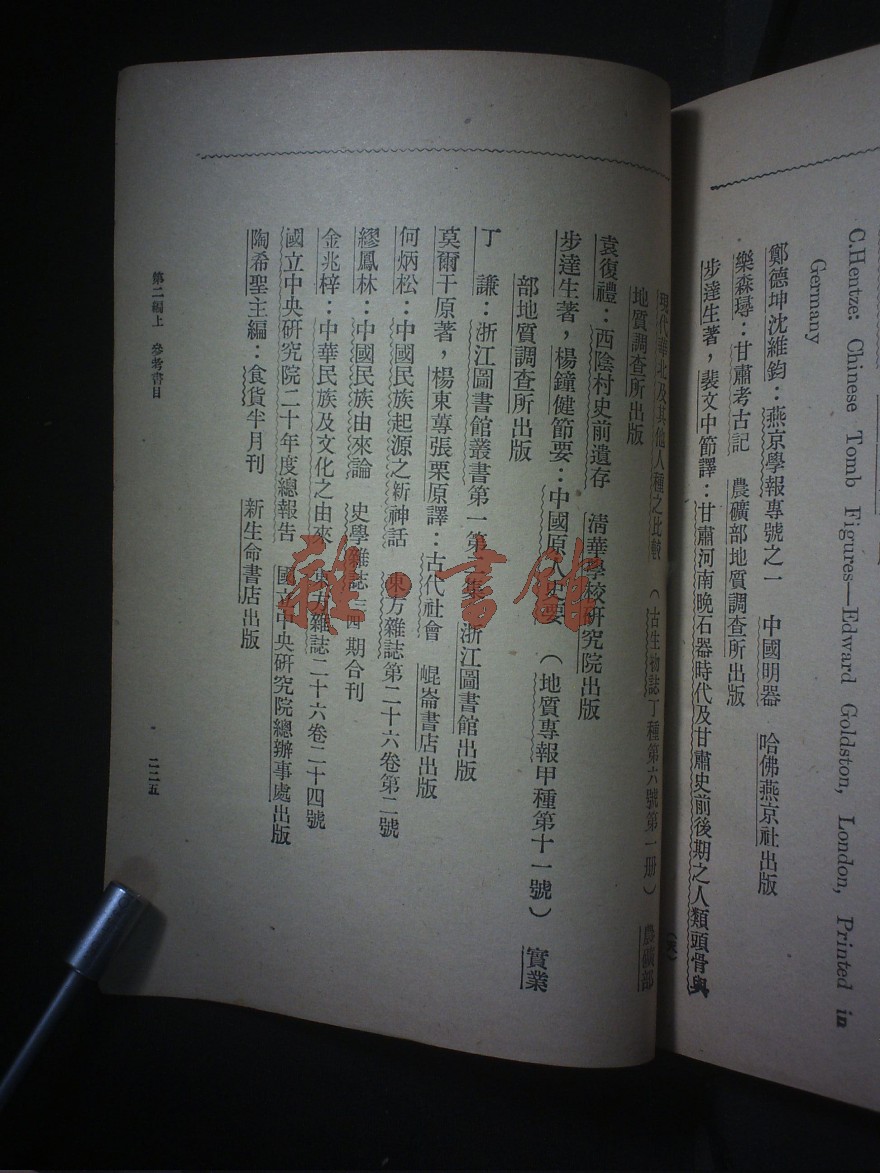 C.Hentze: Chinese Tomb Figures—Edward Goldston, London, Printed in
Germany
鄭德坤沈維鈞：燕京學報專號之一　中國明器　哈佛燕京社出版
樂森璕：甘肅考古記　農礦部地質調查所出版
步達生著，裴文中節譯：甘肅河南晚石器時代及甘肅史前後期之人類頭骨與
現代華北及其他人種之比較　（古生物誌丁種第六號第一册）　農礦部
地質調查所出版
袁復禮：西陰村史前遺存　清華學校研究院出版
步達生著，楊鐘健節要：中國原人史要　（地質專報甲種第十一號）　實業
部地質調查所出版
丁　謙：浙江圖書館叢書第一第二集　浙江圖書館出版
莫爾干原著，楊東蓴張栗原譯：古代社會　崐崙書店出版
何炳松：中國民族起源之新神話　東方雜誌第二十六卷第二號
繆鳳林：中國民族由來論　史學雜誌二三四期合刊
金兆梓：中華民族及文化之由來　東方雜誌二十六卷二十四號
國立中央研究院二十年度總報告　國立中央研究院總辦事處出版
陶希聖主編：食貨半月刊　新生命書店出版
第二編上　參考書目
二二五
雜·書館